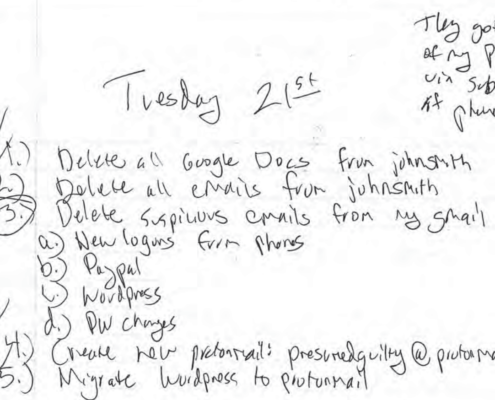 They got
of my P
via sub
if phone
Tuesday 21st
1.) Delete all Google Docs from johnsmith
2.) Delete all emails from johnsmith
3.) Delete suspicious emails from my gmail
a.) New logons from phones
b.) Paypal
c.) Wordpress
d.) PW changes
4.) Create new protonmail: presumedguilty@protonma
5.) Migrate Wordpress to protonmail